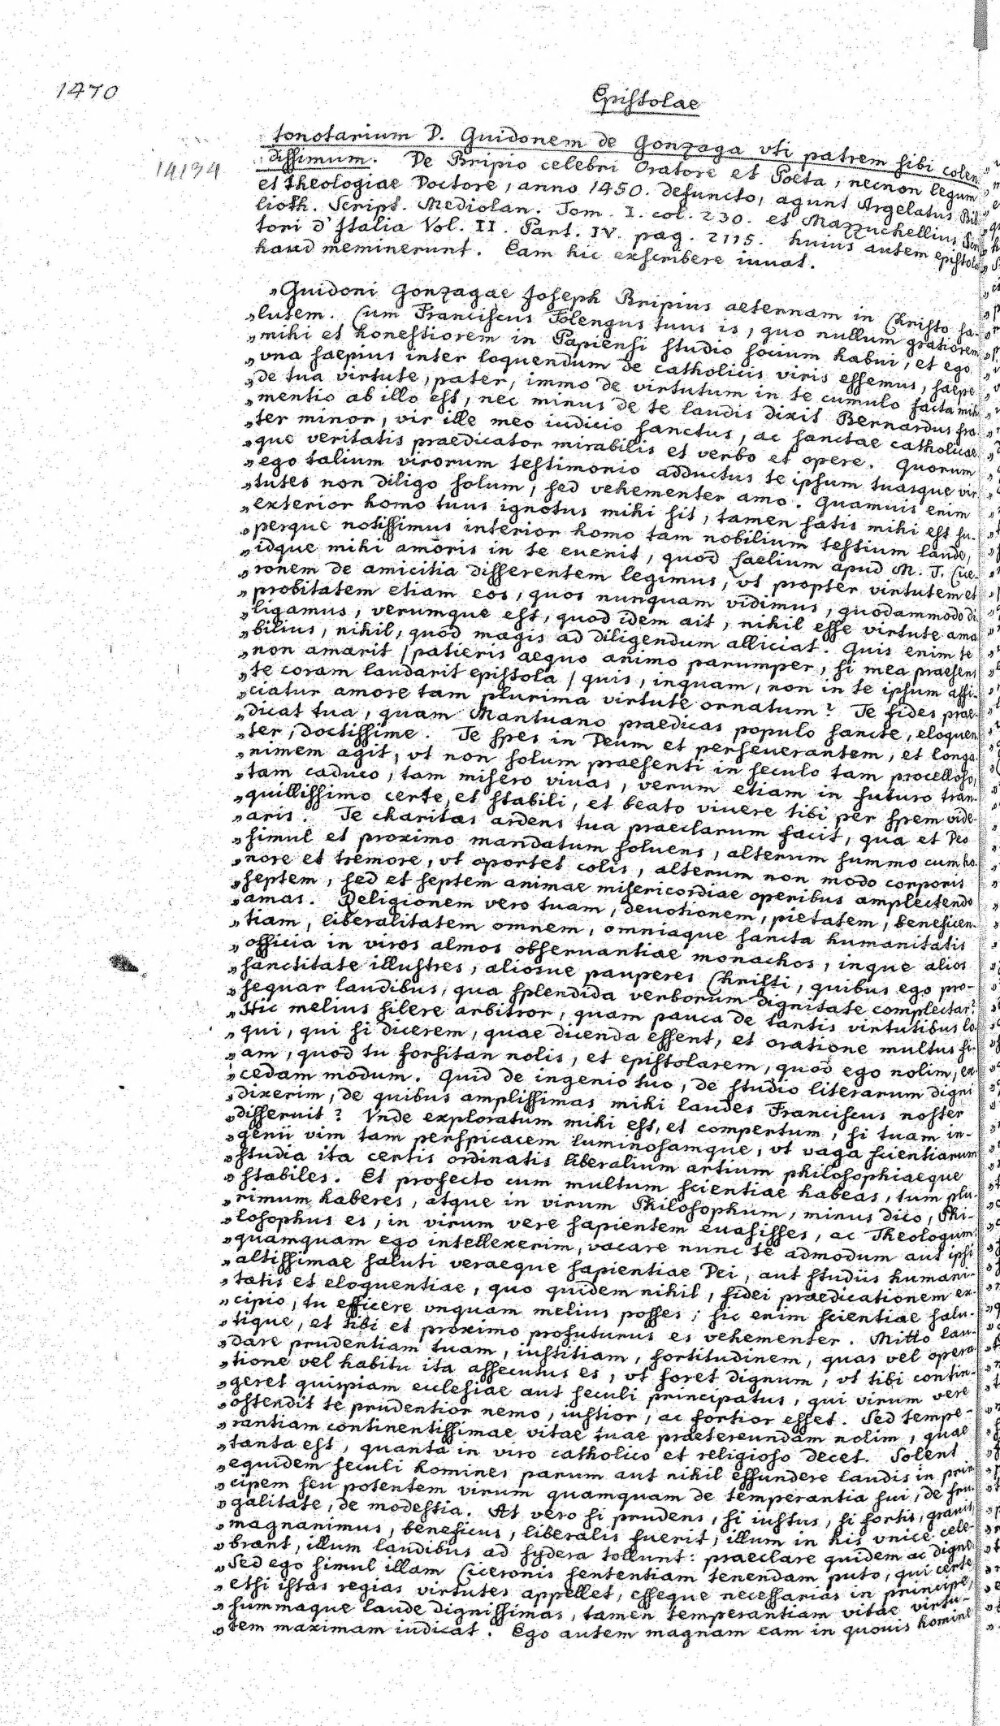 1470
Epistolae
14134
tonotarium D. Guidonem de Gonzaga vti patrem sibi colen
dissimum. De Bripio celebri Oratore et Poeta, necnon legum
et theologiae Doctore, anno 1450. defuncto, agunt Argelatus Bib
lioth. Script. Mediolan. Tom. I. col. 230. et Mazzuchellius Scrit
tori d'Italia Vol. II. Part. IV. pag. 2115. huius autem epistolae
haud meminerunt. Eam hic exscribere iuuat.
„Guidoni Gonzagae Joseph Bripius aeternam in Christo sa-
„lutem. Cum Franciscus Folengus tuus is, quo nullum gratiorem
„mihi et honestiorem in Papiensi studio socium habui, et ego
„vna saepius inter loquendum de catholicis viris essemus, saepe
„de tua virtute, pater, immo de virtutum in te cumulo facta mihi
„mentio ab illo est, nec minus de te laudis dixit Bernardus fra
„ter minor, vir ille meo iudicio sanctus, ac sanctae catholicae
„que veritatis praedicator mirabilis et verbo et opere. Quorum
„ego talium virorum testimonio adductus te ipsum tuasque vir
„tutes non diligo solum, sed vehementer amo. Quamuis enim
„exterior homo tuus ignotus mihi sit, tamen satis mihi est su-
„perque notissimus interior homo tam nobilium testium laude,
„idque mihi amoris in te euenit, quod Laelium apud M. T. Cice-
„ronem de amicitia differentem legimus, vt propter virtutem et
„probitatem etiam eos, quos nunquam vidimus, quodammodo di
„ligamus, verumque est, quod idem ait, nihil esse virtute ama
„bilius, nihil, quod magis ad diligendum alliciat. Quis enim te
„non amarit (patieris aequo animo parumper, si mea praesens
„te coram laudarit epistola) quis, inquam, non in te ipsum affi
„ciatur amore tam plurima virtute ornatum? Te fides prae-
„dicat tua, quam Mantuano praedicas populo sancte, eloquen
„ter, doctissime. Te spes in Deum et perseuerantem, et longa
„nimem agit, vt non solum praesenti in seculo tam procelloso,
„tam caduco, tam misero viuas, verum etiam in futuro tran
„quillissimo certe, et stabili, et beato viuere tibi per spem vide
„aris. Te charitas ardens tua praeclarum facit, qua et Deo
„simul et proximo mandatum soluens, alterum summo cum ho
„nore et tremore, vt oportet colis, alterum non modo corporis
„septem, sed et septem animae misericordiae operibus amplectendo
„amas. Religionem vero tuam, deuotionem, pietatem, beneficen
„tiam, liberalitatem omnem, omniaque sancta humanitatis
„officia in viros almos obseruantiae monachos, inque alios
„sanctitate illustres, aliosue pauperes Christi, quibus ego pro-
„sequar laudibus, qua splendida verborum dignitate complectar?
„Hic melius silere arbitror, quam pauca de tantis virtutibus lo
„qui, qui si dicerem, quae dicenda essent, et oratione multus fi-
„am, quod tu forsitan nolis, et epistolarem, quod ego nolim, ex
„cedam modum. Quid de ingenio tuo, de studio literarum digni
„dixerim, de quibus amplissimas mihi laudes Franciscus noster
„disseruit? Vnde exploratum mihi est, et compertum, si tuam in-
„genii vim tam perspicacem luminosamque, vt vaga scientiarum
„studia ita certis ordinatis liberalium artium philosophiaeque
„stabiles. Et profecto cum multum scientiae habeas, tum plu-
„rimum haberes, atque in virum Philosophum, minus dico, Phi-
„losophus es, in virum vere sapientem euasisses, ac Theologum
„quamquam ego intellexerim, vacare nunc te admodum aut ipsi
„altissimae saluti veraeque sapientiae Dei, aut studiis humani-
„tatis et eloquentiae, quo quidem nihil, fidei praedicationem ex-
„cipio, tu efficere vnquam melius posses; sic enim scientiae salu-
„tique, et tibi et proximo profuturus es vehementer. Mitto lau-
„dare prudentiam tuam, iustitiam, fortitudinem, quas vel opera
„tione vel habitu ita assecutus es, vt foret dignum, vt tibi contin-
„geret quispiam ecclesiae aut seculi principatus, qui virum vere
„ostendit te prudentior nemo, iustior, ac fortior esset. Sed tempe-
„rantiam continentissimae vitae tuae praetereundam nolim, quae
„tanta est, quanta in viro catholico et religioso decet. Solent
„equidem seculi homines parum aut nihil effundere laudis in prin
„cipem seu potentem virum quamquam de temperantia sui, de fru
„galitate, de modestia. At vero si prudens, si iustus, si fortis, grauis
„magnanimus, beneficus, liberalis fuerit, illum in his vnice cele-
„brant, illum laudibus ad sydera tollunt: praeclare quidem ac digne
„Sed ego simul illam Ciceronis sententiam tenendam puto, qui certe
„etsi istas regias virtutes appellet, esseque necessarias in principe,
„summaque laude dignissimas, tamen temperantiam vitae virtu-
„tem maximam iudicat. Ego autem magnam eam in quouis homine